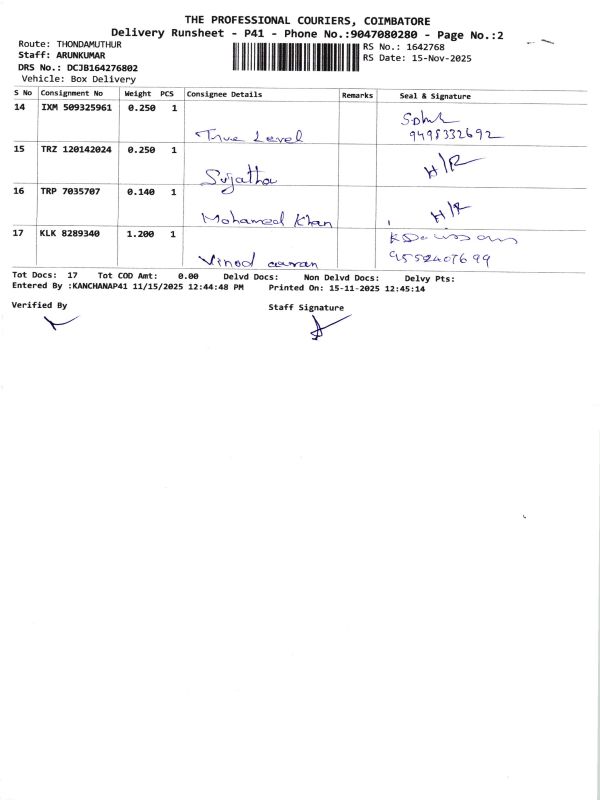 THE PROFESSIONAL COURIERS, COIMBATORE
Delivery Runsheet - P41 - Phone No.:9047080280 - Page No.:2
Route: THONDAMUTHUR
RS No.: 1642768
Staff: ARUNKUMAR
RS Date: 15-Nov-2025
DRS No.: DCJB164276802
Vehicle: Box Delivery
S No Consignment No Weight PCS Consignee Details Remarks Seal & Signature
14 IXM 509325961 0.250 1
True Level 9498332692
15 TRZ 120142024 0.250 1
Sujatha H/R
16 TRP 7035707 0.140 1
Mohamed Khan H/R
17 KLK 8289340 1.200 1
Vinod 9552407699
Tot Docs: 17 Tot COD Amt: 0.00 Delvd Docs: Non Delvd Docs: Delvy Pts:
Entered By :KANCHANAP41 11/15/2025 12:44:48 PM Printed On: 15-11-2025 12:45:14
Verified By Staff Signature